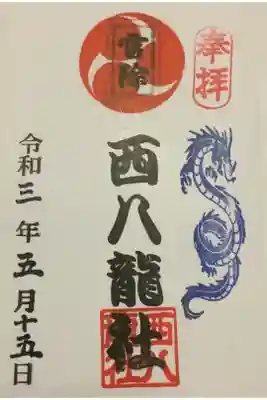 奉拝
西八龍社
令和三年五月十五日